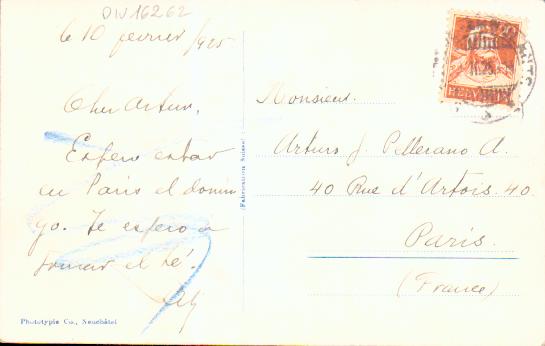 OW16262
le 10 février 1925
Cher Arturo,
Espero estar
en Paris el domin
go. Te espero a
tomar el té.
Monsieur
Arturo J. Pellerano A.
40 Rue d'Artois. 40
Paris.
(France)
(Fabrication Suisse)
HELVETIA
Phototypie Co., Neuchâtel